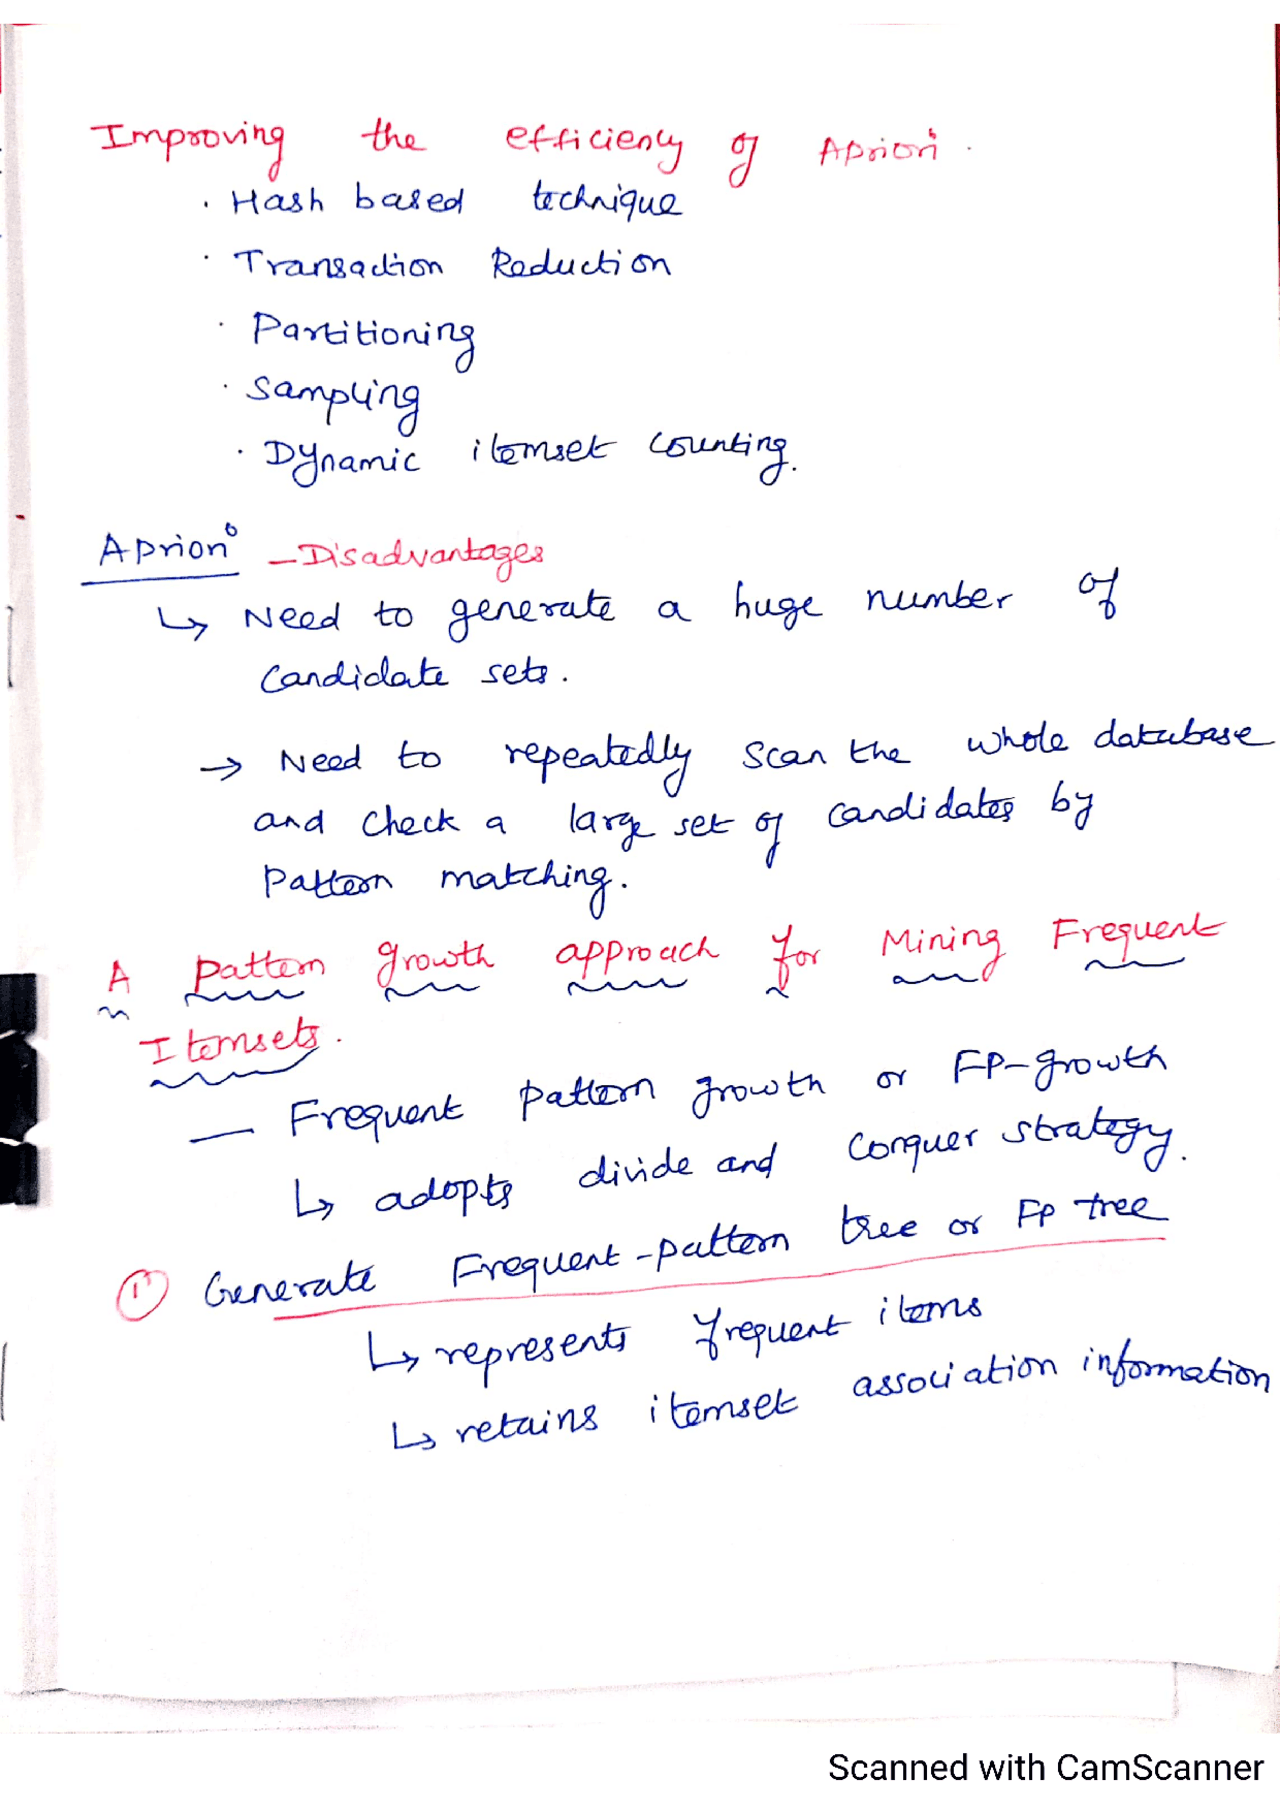 Improving the efficiency of Apriori.
· Hash based technique
· Transaction Reduction
· Partitioning
· Sampling
· Dynamic itemset counting.
Apriori - Disadvantages
↳ Need to generate a huge number of
candidate sets.
→ Need to repeatedly scan the whole database
and check a large set of candidates by
Pattern matching.
A pattern growth approach for Mining Frequent
Itemsets.
— Frequent pattern growth or FP-growth
↳ adopts divide and conquer strategy.
① Generate Frequent-pattern tree or FP tree
↳ represents frequent items
↳ retains itemset association information
Scanned with CamScanner